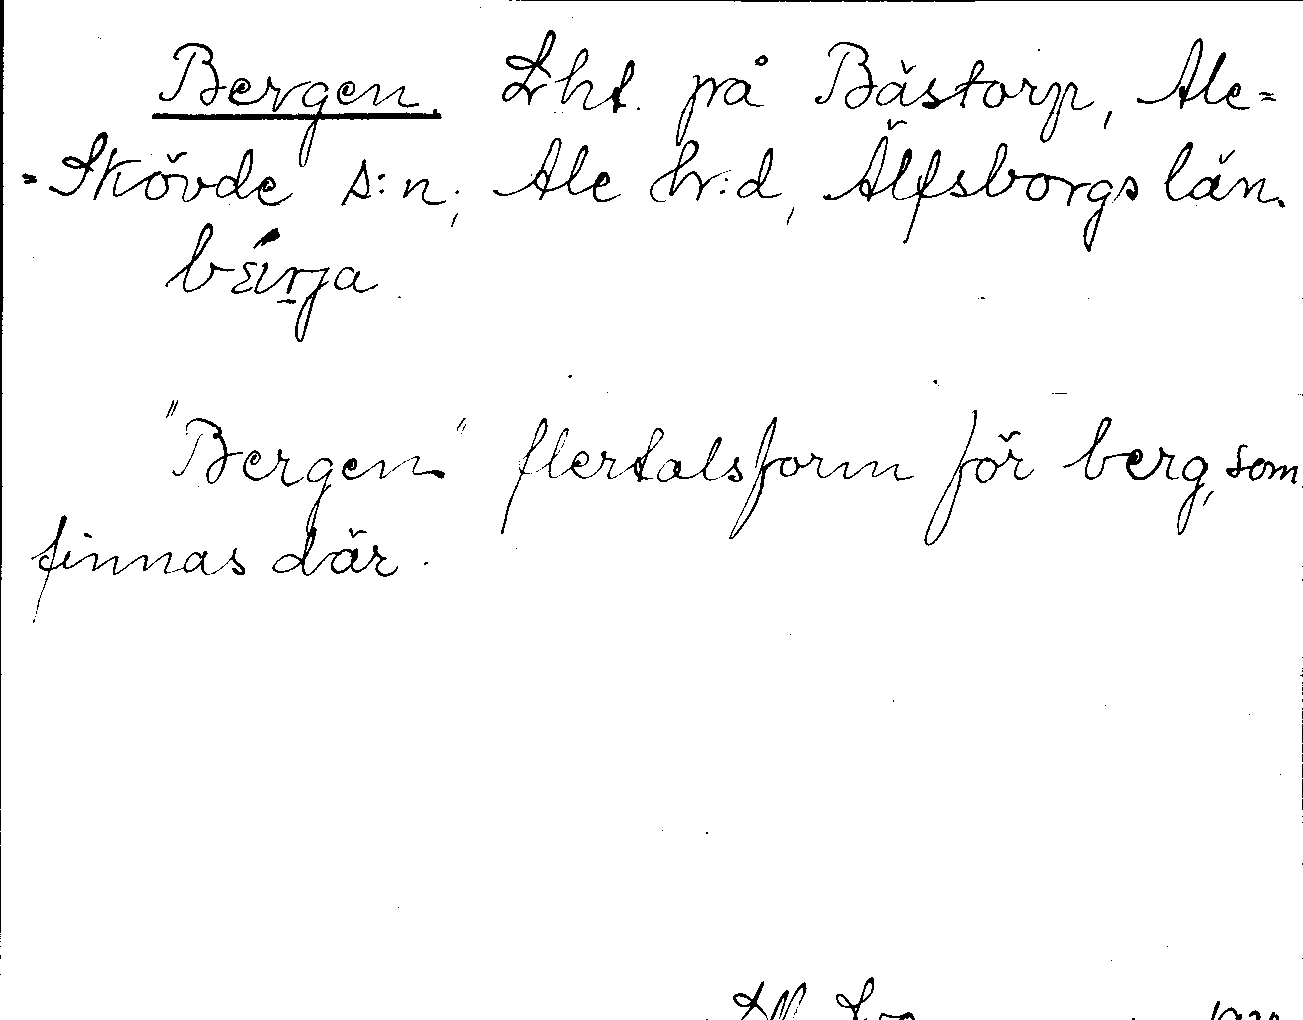 Bergen. Lht. på Båstorp, Ale=
=Skövde s:n, Ale hr:d, Älfsborgs län.
"Bergen" flertalsform för berg, som
finnas där.